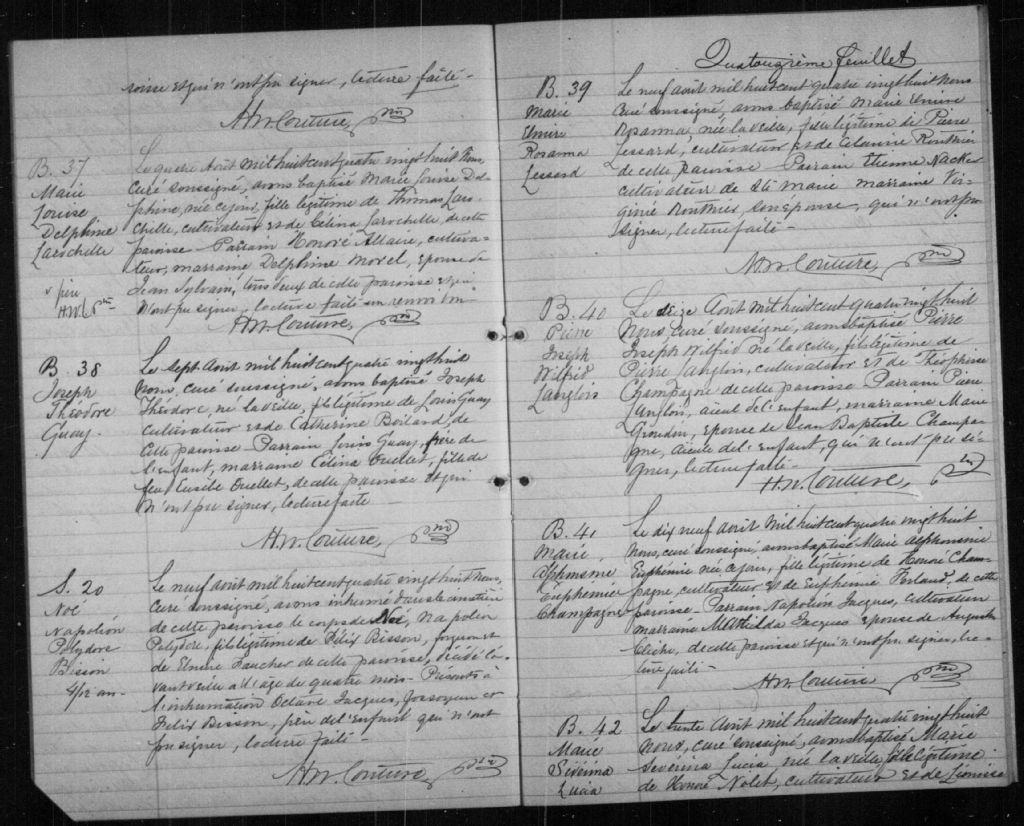 roisse et qui n'ont pu signer, lecture faite -
H.W. Couture, Ptre
B. 37
Marie
Louise
Delphine
Larochelle
v père
H.W.C Ptre
Le quatre Août mil huit cent quatre vingt huit Nous,
curé soussigné, avons baptisé Marie Louise Del-
phine, née ce jour, fille légitime de Thomas Laro-
chelle, cultivateur et de Célina Larochelle de cette
paroisse - Parrain Honoré Allaire, cultiva-
teur, marraine Delphine Morel, épouse de
Jean Sylvain, tous deux de cette paroisse et qui
n'ont pu signer, lecture faite un renvoi bon
H.W. Couture, Ptre
B. 38
Joseph
Théodore
Guay.
Le sept Août mil huit cent quatre vingt huit
Nous, curé soussigné, avons baptisé Joseph
Théodore, né la veille, fils légitime de Louis Guay
cultivateur et de Catherine Boilard, de
cette paroisse Parrain Louis Guay, frère de
l'enfant, marraine Célina Ouellet, fille de
feu Eusèbe Ouellet, de cette paroisse et qui
n'ont pu signer, lecture faite
H.W. Couture, Ptre
S. 20
Noé
Napoléon
Polydore
Bisson
4/12 an -
Le neuf août mil huit cent quatre vingt huit Nous,
curé soussigné, avons inhumé dans le cimetière
de cette paroisse le corps de Noé, Napoléon
Polydore, fils légitime de Félix Bisson, forgeron et
de Elmire Faucher de cette paroisse, décédé l'a-
vant veille à l'âge de quatre mois - Présents à
l'inhumation Octave Jacques, fossoyeur et
Félix Bisson, père de l'enfant qui n'ont
pu signer, lecture faite -
H.W. Couture, Ptre
Quatorzième feuillet
B. 39
Marie
Elmire
Rosanna
Lessard
Le neuf août mil huit cent quatre vingt huit Nous
Curé soussigné, avons baptisé Marie Elmire
Rosanna née la veille, fille légitime de Pierre
Lessard, cultivateur et de Célanire Routhier
de cette paroisse Parrain Etienne
cultivateur de Ste Marie marraine Vir-
ginie Routhier, son épouse, qui n'ont pu
signer, lecture faite -
H.W. Couture, Ptre
B. 40
Pierre
Joseph
Wilfrid
Langlois
Le seize Août mil huit cent quatre vingt huit
Nous, curé soussigné, avons baptisé Pierre
Joseph Wilfrid né la veille, fils légitime de
Pierre Langlois, cultivateur et de Théophisse
Champagne de cette paroisse Parrain Pierre
Langlois, aieul de l'enfant, marraine Marie
Grondin, épouse de Jean Baptiste Champa-
gne, aieule de l'enfant, qui n'ont pu si-
gner, lecture faite -
H.W. Couture, Ptre
B. 41
Marie
Alphonsine
Euphemier
Champagne
Le dix neuf août mil huit cent quatre vingt huit
Nous, curé soussigné, avons baptisé Marie Alphonsine
Euphémie née ce jour, fille légitime de Honoré Cham-
pagne, cultivateur et de Euphémie Ferland, de cette
paroisse - Parrain Napoléon Jacques, cultivateur
marraine Mathilda Jacques épouse de Augustin
Cliche, de cette paroisse et qui n'ont pu signer, lec-
ture faite -
H.W. Couture Ptre
B. 42
Marie
Sévérina
Lucia
Le trente Août mil huit cent quatre vingt huit
Nous, curé soussigné, avons baptisé Marie
Severina Lucia, née la veille fille légitime
de Honoré Nolet, cultivateur et de